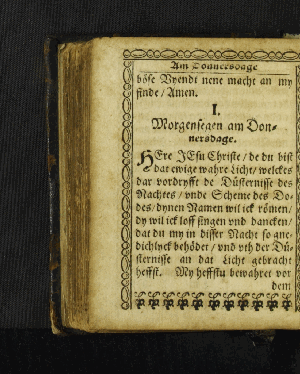 Am Donnersdage
böse Vyendt nene macht an my
finde / Amen.
I.
Morgensegen am Don-
nersdage.
HEre JEsu Christe / de du bist
dat ewige wahre Licht / welckes
dar vordryfft de Düsternisse des
Nachtes / vnde Scheme des Do-
des / dynen Namen wil ick römen /
dy wil ick loff singen vnd dancken /
dat du my in disser Nacht so gne-
dichlyck behödet / vnd vth der Dü-
sternisse an dat Licht gebracht
heffst. My heffstu bewahret vor
dem